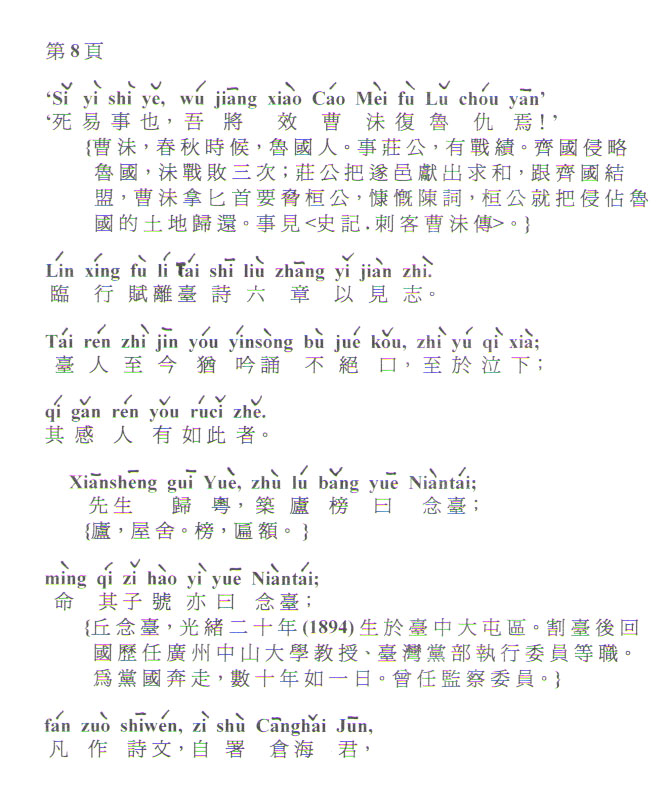 第8頁
‘Sǐ yì shì yě, wú jiāng xiào Cáo Mèi fù Lǔ chóu yān’
‘死易事也，吾將效曹沬復魯仇焉！’
{曹沬，春秋時候，魯國人。事莊公，有戰績。齊國侵略
魯國，沬戰敗三次；莊公把遂邑獻出求和，跟齊國結
盟，曹沬拿匕首要脅桓公，慷慨陳詞，桓公就把侵佔魯
國的土地歸還。事見<史記.刺客曹沬傳>。}
Lín xíng fù lí Tái shī liù zhāng yǐ jiàn zhì.
臨行賦離臺詩六章以見志。
Tái rén zhì jīn yóu yínsòng bù jué kǒu, zhì yú qì xià;
臺人至今猶吟誦不絕口，至於泣下；
qí gǎn rén yǒu rúcǐ zhě.
其感人有如此者。
Xiānshēng guī Yuè, zhù lú bǎng yuē Niàntái;
先生歸粵，築廬榜曰念臺；
{廬，屋舍。榜，匾額。}
mìng qí zǐ hào yì yuē Niàntái;
命其子號亦曰念臺；
{丘念臺，光緒二十年(1894)生於臺中大屯區。割臺後回
國歷任廣州中山大學教授、臺灣黨部執行委員等職。
為黨國奔走，數十年如一日。曾任監察委員。}
fán zuò shīwén, zì shù Cānghǎi Jūn,
凡作詩文，自署倉海君，